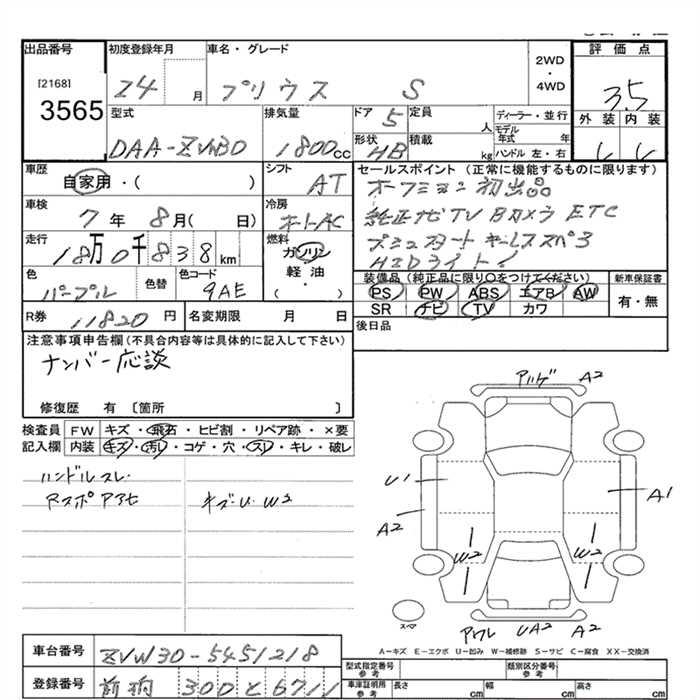 出品番号 初度登録年月 車名・グレード 2WD・4WD 評価点
[2168]
3565 24 月 プリウス S 3.5
型式 排気量 ドア 5 定員 人 ディーラー・並行 外装 内装
DAA-ZVW30 1800cc 形状 HB 積載 kg モデル年式 年 ハンドル 左・右
車歴 シフト セールスポイント (正常に機能するものに限ります)
自家用・( ) AT
車検 冷房 純正ナビTV Bカメラ ETC
7年 8月( 日) オートAC
走行 燃料 HIDライト
18万0千838km ガソリン
色 色替 色コード 軽油
パープル 9AE ・( )
装備品 (純正品に限り〇をつけてください) 新車保証書
PS PW ABS エアB AW 有・無
SR ナビ TV カワ
R券 11820円 名変期限 月 日 後日品
注意事項申告欄 (不具合内容等は具体的に記入して下さい)
ナンバー応談
修復歴 有 〔箇所 〕
検査員 FW キズ・飛石・ヒビ割・リペア跡・×要
記入欄 内装 キズ・汚レ・コゲ・穴・スレ・キレ・破レ
ハンドルスレ
キズ・U・W2
A2
U1
A1
A2
W2
W2
スペア
UA2 A2
A-キズ E-エクボ U-凹み W-補修跡 S-サビ C-腐食 XX-交換済
車台番号 ZVW30-5451218
登録番号 300 と 6711
型式指定番号 参考 類別区分番号 参考
車庫証明用 参考 長さ cm 幅 cm 高さ cm